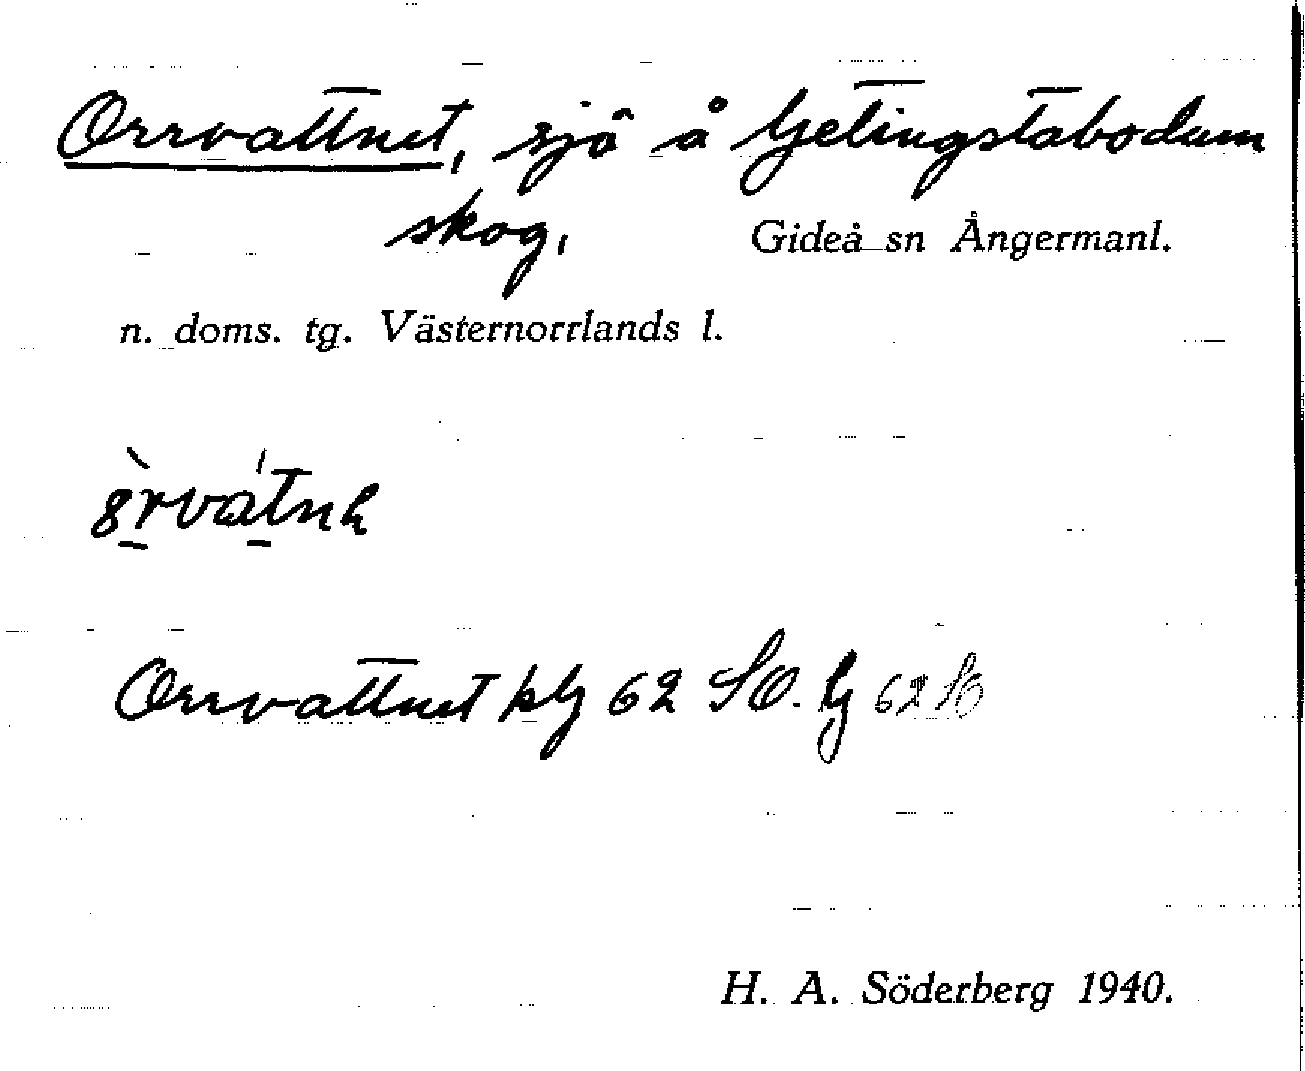 Orrvattnet, sjö å Getingstabodum
skog, Gideå sn Ångermanl.
n. doms. tg. Västernorrlands l.
Orrvattnet kbg 62 SO. G 62 SO
H. A. Söderberg 1940.